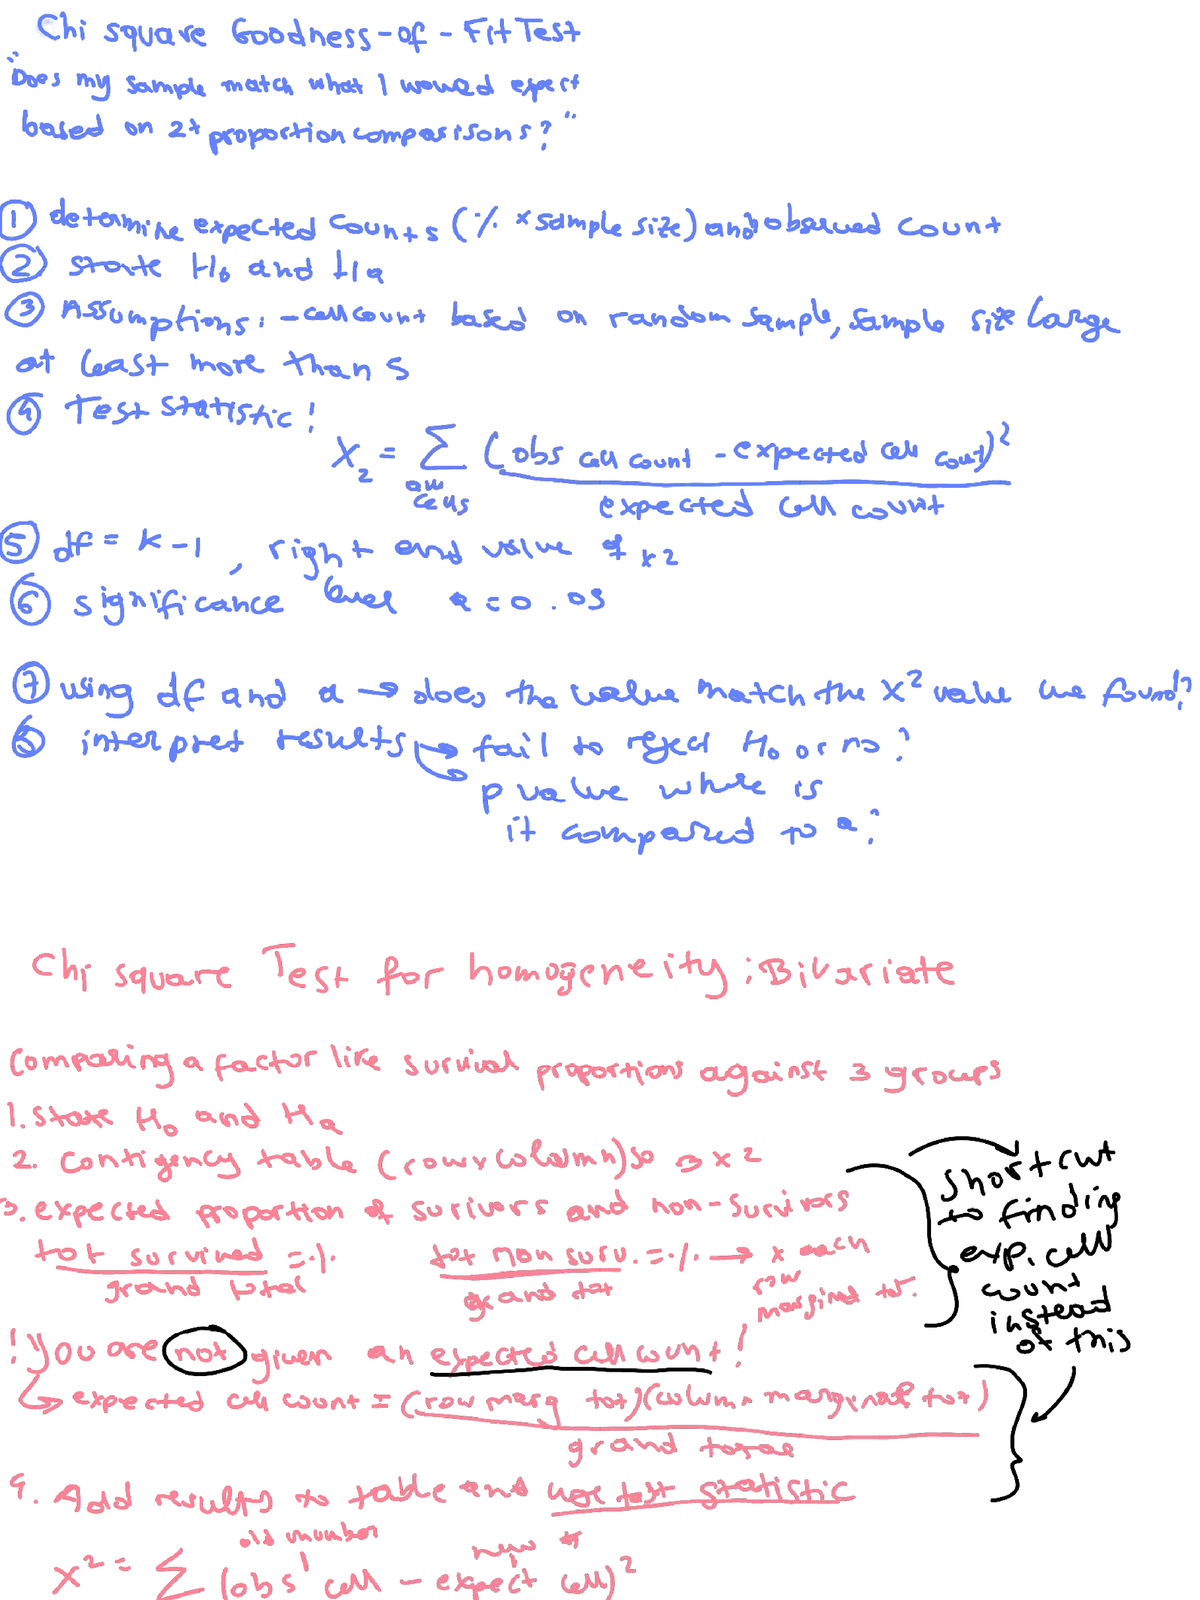 Chi square Goodness-of-Fit Test
"Does my sample match what I would expect
based on 2+ proportion comparisons?"
① determine expected counts (% x sample size) and observed count
② state H₀ and Ha
③ Assumptions: - cell count based on random sample, sample size large
at least more than 5
④ Test Statistic!
X₂ = Σ (obs cell count - expected cell count)²
all cells
expected cell count
⑤ df = k-1, right end value of x2
⑥ significance level a = 0.05
⑦ using df and a → does the value match the X² value we found?
⑧ interpret results → fail to reject H₀ or no?
p value where is
it compared to a?
Chi square Test for homogeneity: Bivariate
Comparing a factor like survival proportions against 3 groups
1. State H₀ and Ha
2. Contigency table (row x column) so 3 x 2
3. expected proportion of surivors and non-survivors
tot survived = % tot non surv. = % → x each
grand total grand tot row
marginal tot.
! You are not given an expected cell count!
↳ expected cell count = (row marg tot)(column marginal tot)
grand total
shortcut
to finding
exp. cell
count
instead
of this
4. Add results to table and use test statistic
old number new #
X² = Σ (obs cell - expect cell)²